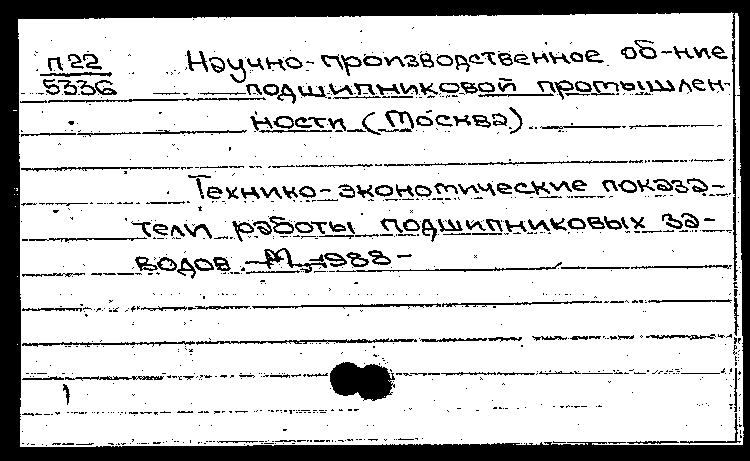 П22 Научно-производственное об-ние
5336 подшипниковой промышлен-
ности (Москва)
Технико-экономические показа-
тели работы подшипниковых за-
водов. - М., 1988 -
1